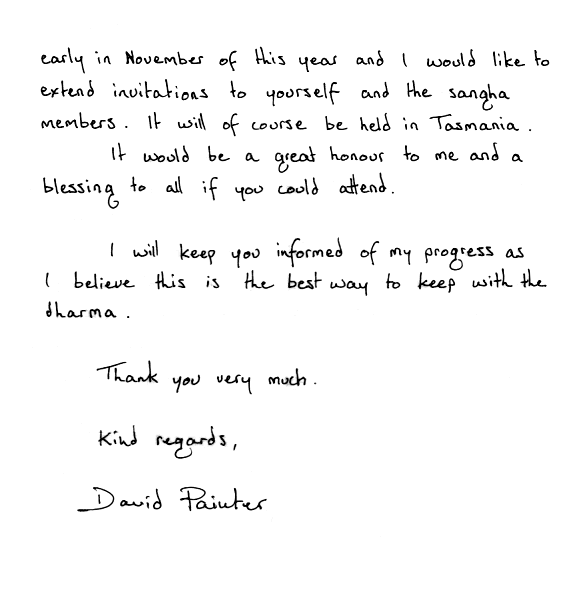 early in November of this year and I would like to
extend invitations to yourself and the sangha
members. It will of course be held in Tasmania.
It would be a great honour to me and a
blessing to all if you could attend.
I will keep you informed of my progress as
I believe this is the best way to keep with the
dharma.
Thank you very much.
Kind regards,
David Painter